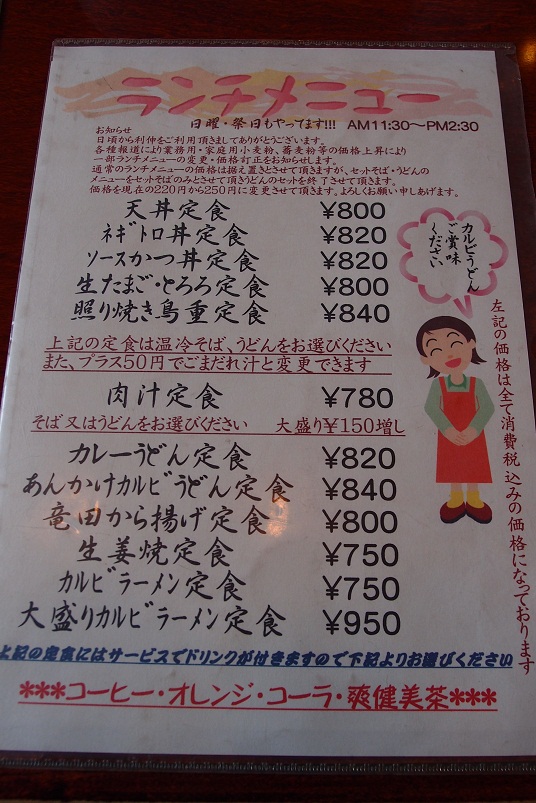 ランチメニュー
日曜・祭日もやってます!!! AM11:30～PM2:30
お知らせ
日頃から利伸をご利用頂きましてありがとうございます。
各種報道により業務用・家庭用小麦粉、蕎麦粉等の価格上昇により
一部ランチメニューの変更・価格訂正をお知らせします。
通常のランチメニューの価格は据え置きとさせて頂きますが、セットそば・うどんの
メニューをセットそばのみとさせて頂きうどんのセットを終了させて頂きます。
価格を現在の220円から250円に変更させて頂きます。よろしくお願い申しあげます。
天丼定食 ¥800
ネギトロ丼定食 ¥820
ソースかつ丼定食 ¥820
生たまご・とろろ定食 ¥800
照り焼き鳥重定食 ¥840
上記の定食は温冷そば、うどんをお選びください
また、プラス50円でごまだれ汁と変更できます
肉汁定食 ¥780
そば又はうどんをお選びください 大盛り¥150増し
カレーうどん定食 ¥820
あんかけカルビうどん定食 ¥840
竜田から揚げ定食 ¥800
生姜焼定食 ¥750
カルビラーメン定食 ¥750
大盛りカルビラーメン定食 ¥950
上記の定食にはサービスでドリンクが付きますので下記よりお選びください
***コーヒー・オレンジ・コーラ・爽健美茶***
カルビうどん
ご賞味
ください
左記の価格は全て消費税込みの価格になっております